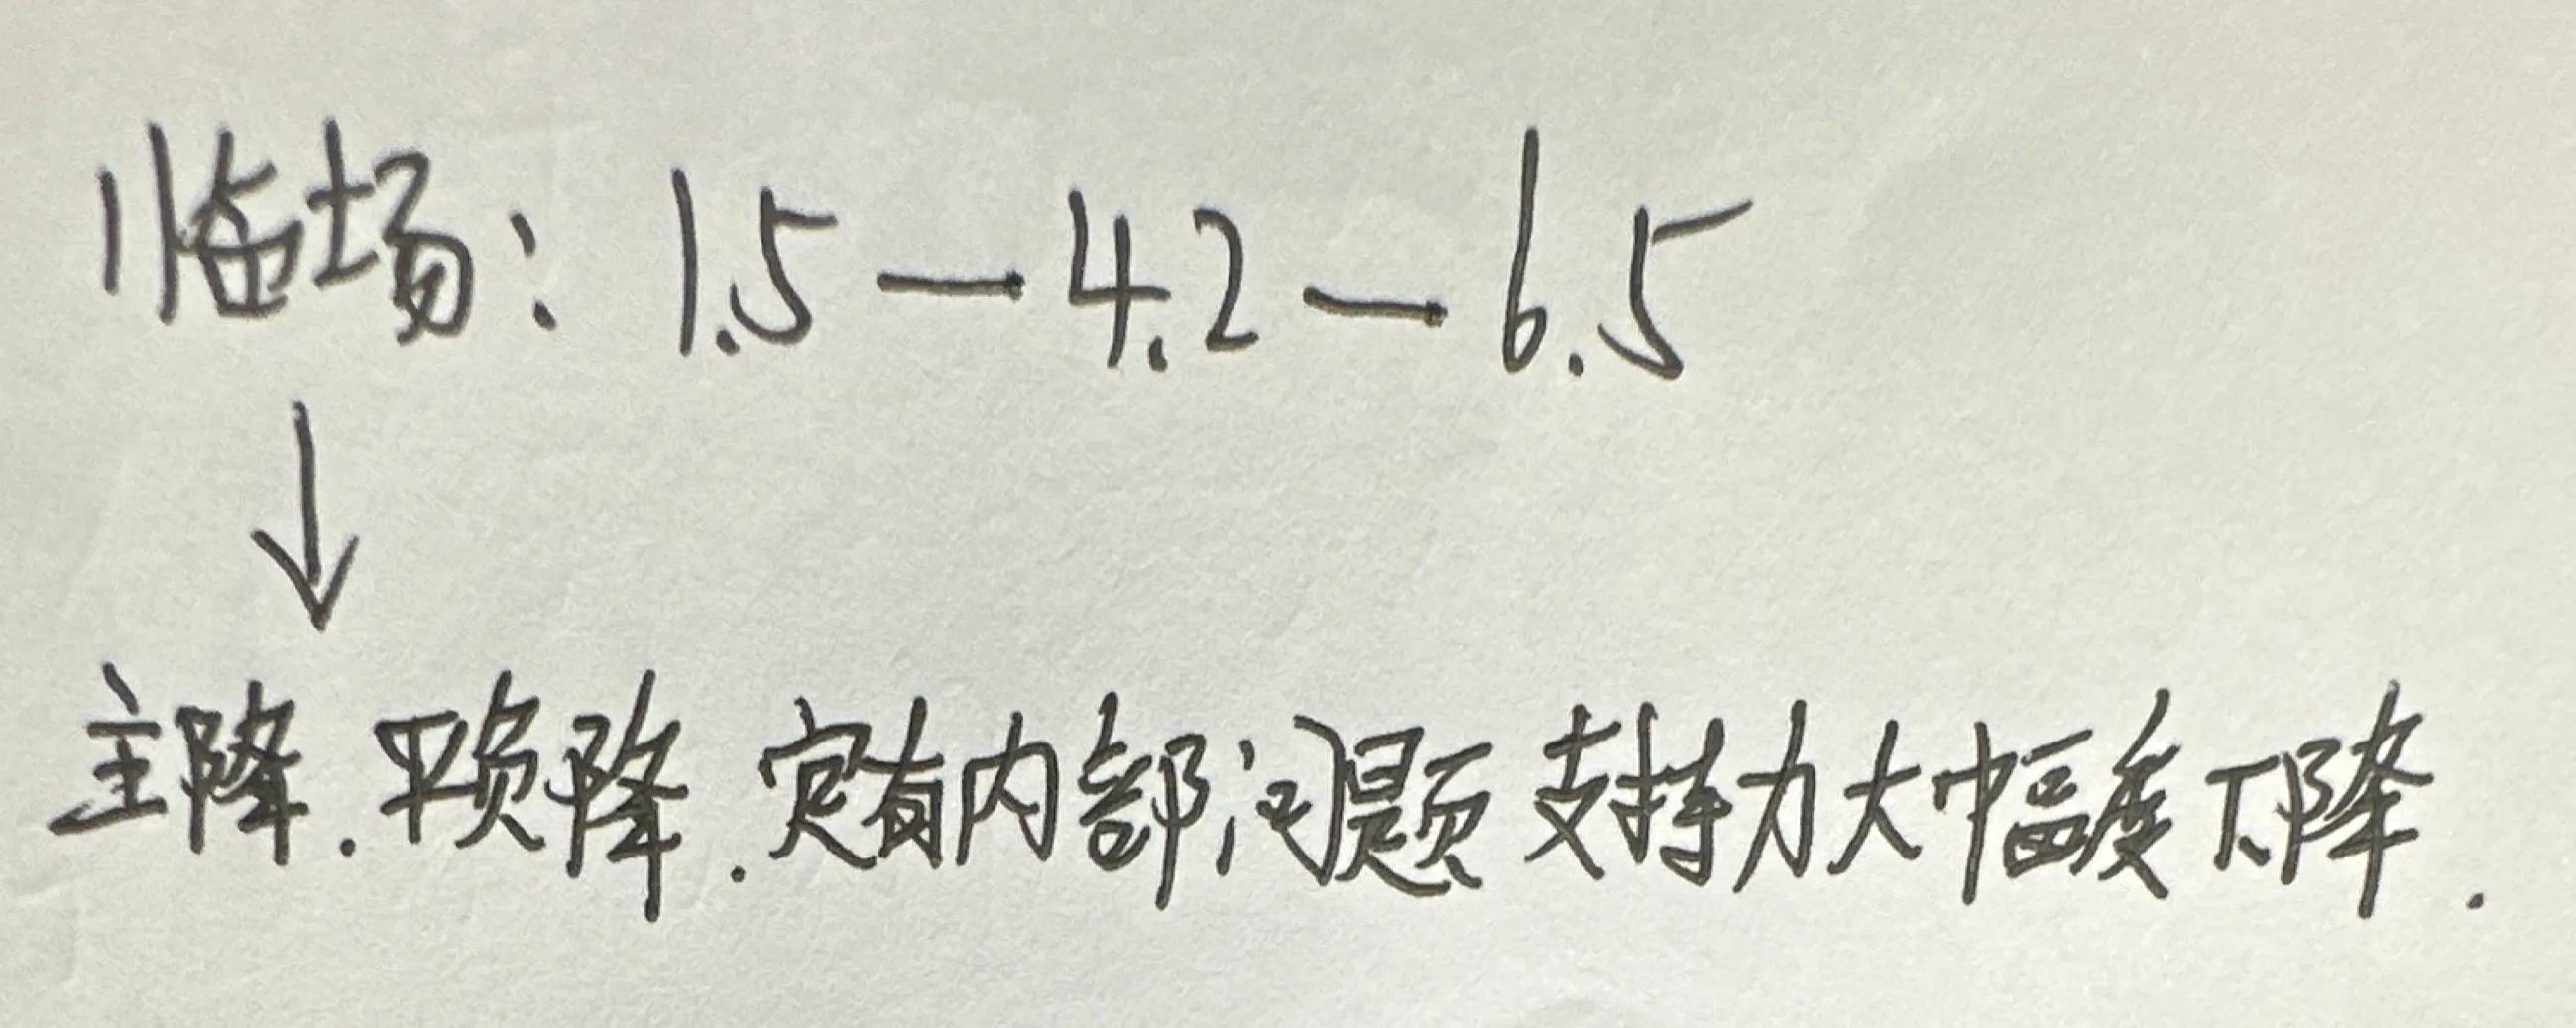 临场: 1.5 — 4.2 — 6.5
↓
主降. 平负降. 定有内部问题 支持力大幅度下降.